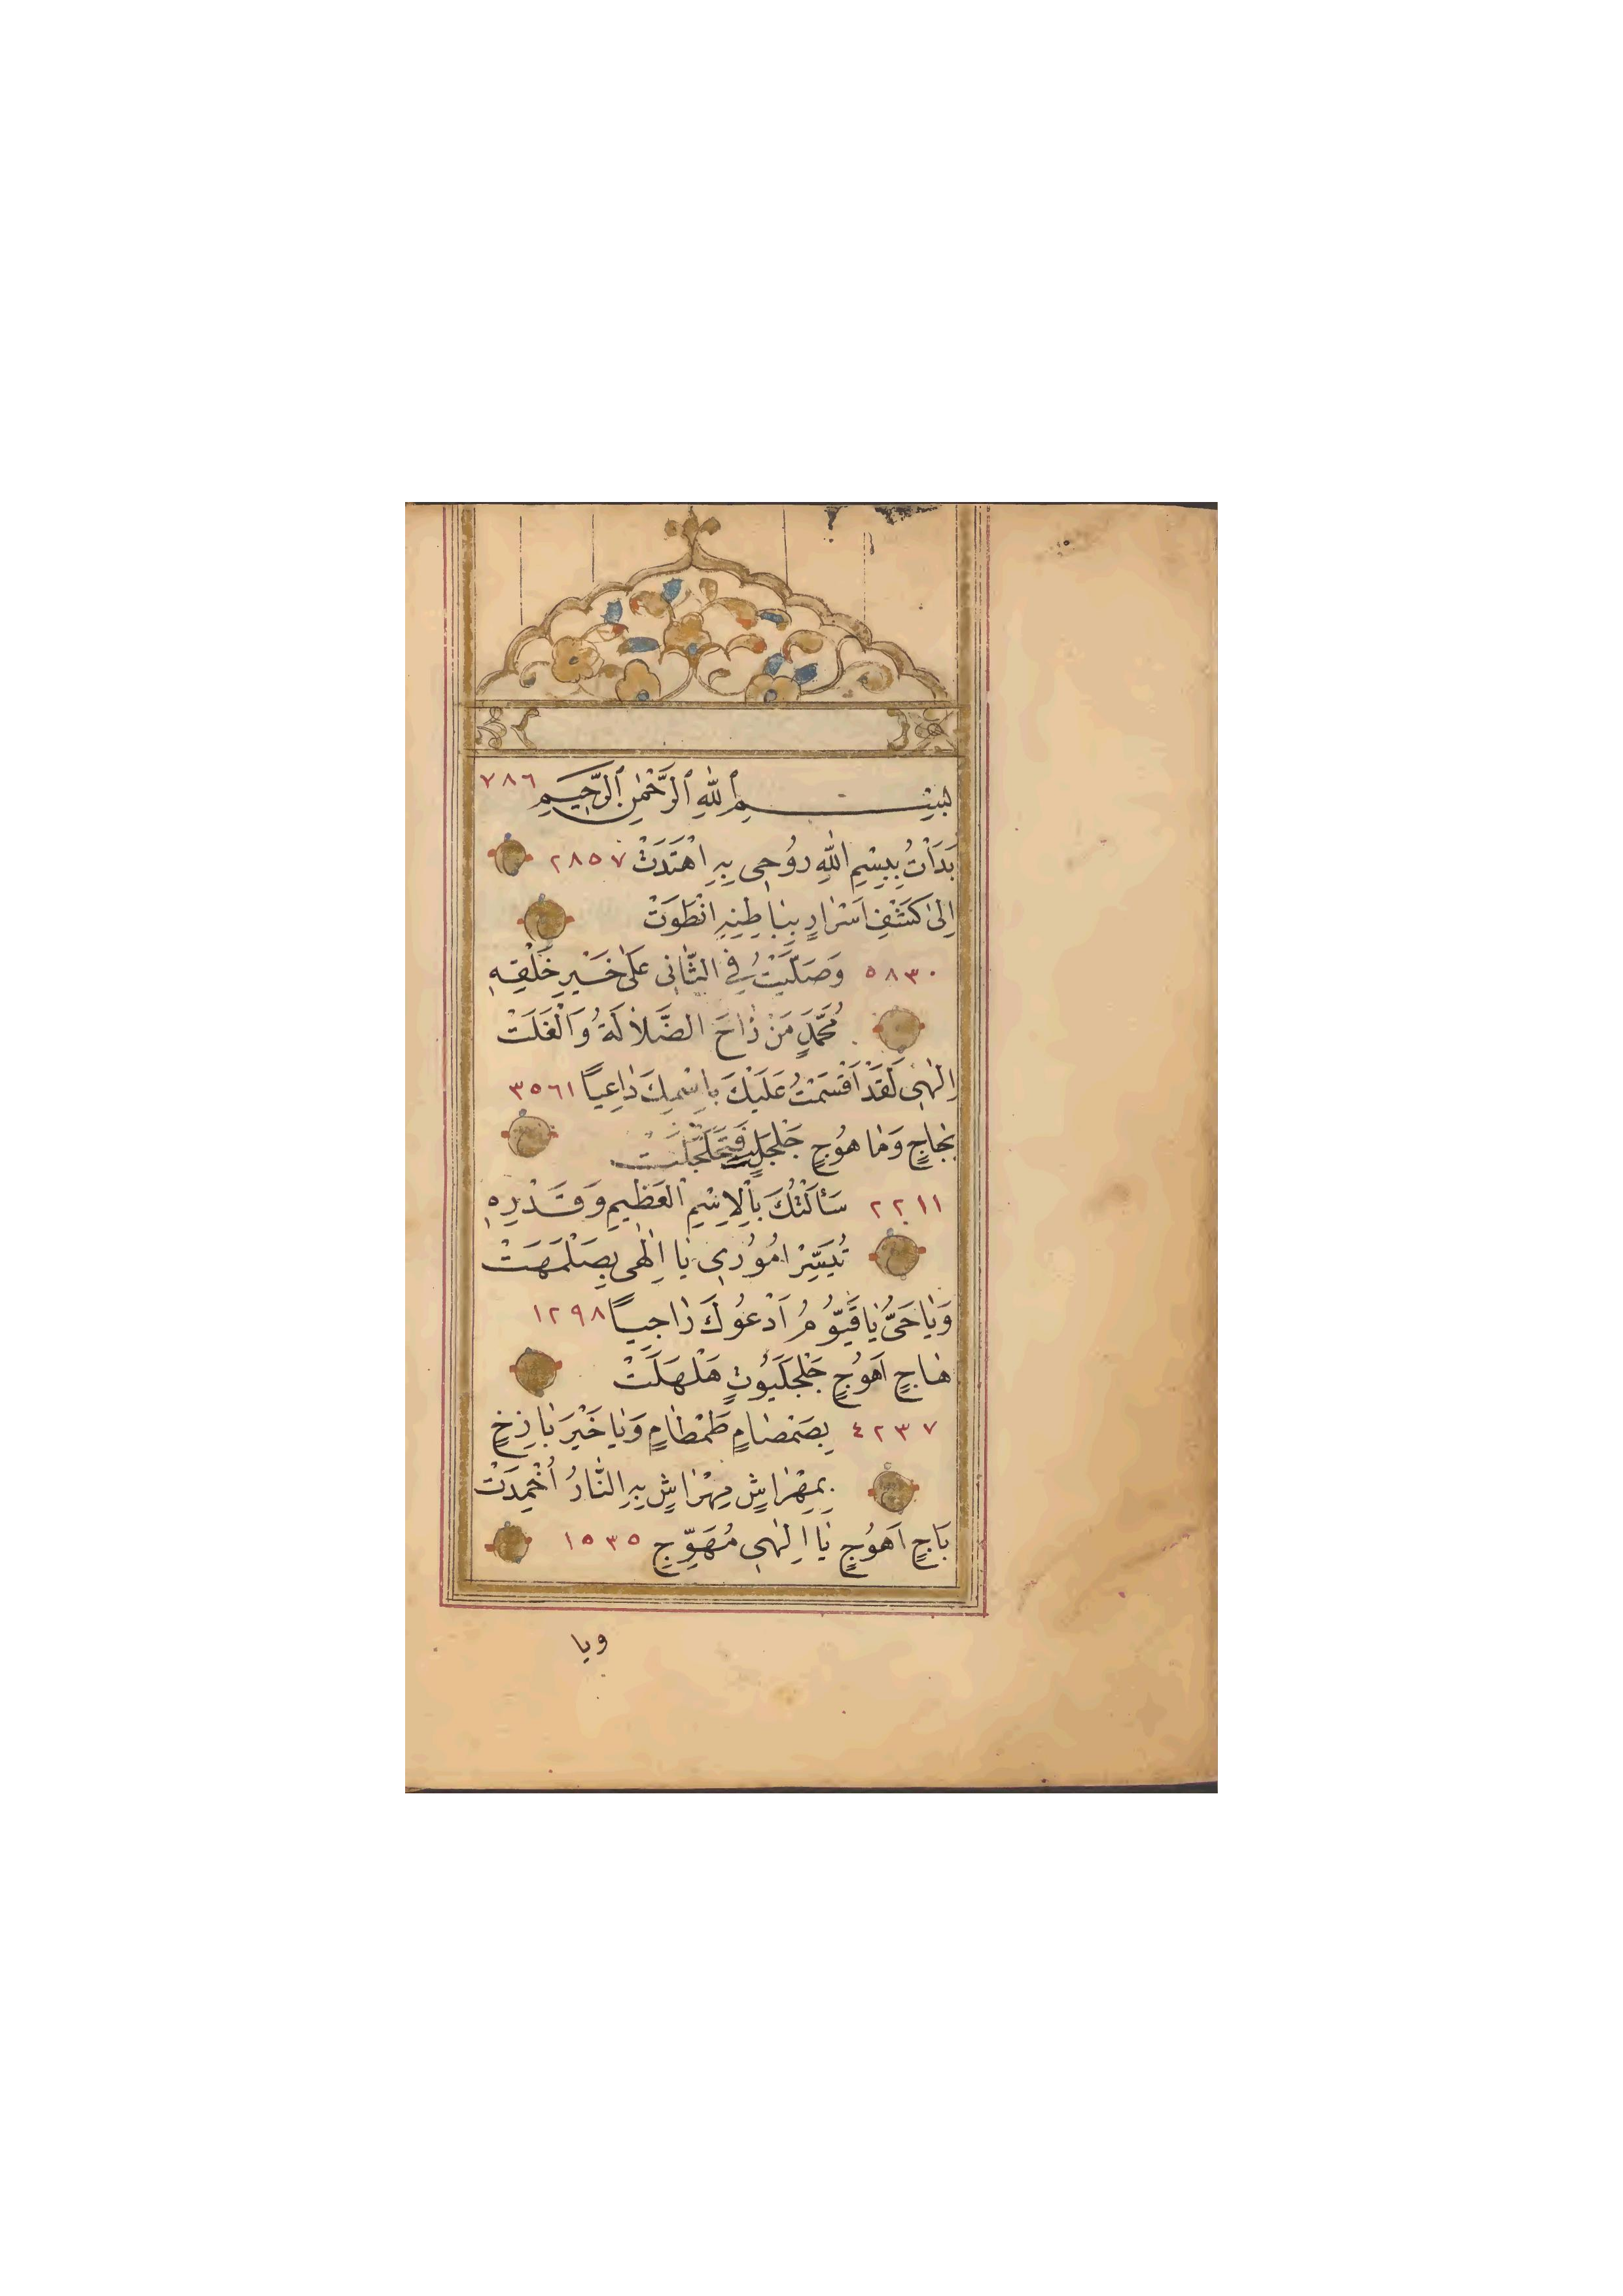 بِسْمِ اللّٰهِ الرَّحْمٰنِ الرَّحِيمِ ٧٨٦
بَدَاْتُ بِبِسْمِ اللّٰهِ رُوُحِى بِهِ اهْتَدَتْ ٢٨٥٧
اِلىٰ كَشْفِ اَسْرَارٍ بِبَاطِنِهِ انْطَوَتْ
٥٨٣٠ وَصَلَّيْتُ فِى الثَّانِى عَلىٰ خَيْرِ خَلْقِهِ
مُحَمَّدٍ مَنْ زَاحَ الضَّلاَلَةُ وَالْغَلَتْ
اِلٰهِى لَقَدْ اَقْسَمْتُ عَلَيْكَ بِاِسْمِكَ دَاعِياً ٣٥٦١
بِجَاجٍ وَمَا هُوُجٍ جَلْجَلَتْ فَتَجَلْجَلَتْ
٢٢١١ سَأَلْتُكَ بِاْلاِسْمِ الْعَظِيمِ وَقَدْرِهِ
تُيَسِّرْ اُمُوُرِى يَا اِلٰهِى بِصَلْمَهَتْ
وَيَا حَىُّ يَا قَيُّوُمُ اَدْعُوُكَ رَاجِياً ١٢٩٨
هَاجٍ اَهُوُجٍ جَلْجَلَيُوُتٍ هَلْهَلَتْ
٤٢٣٧ بِصَمْصَامٍ طَمْطَامٍ وَيَا خَيْرَ بَازِخٍ
بِمِهْرَاشٍ مِهْرَاشٍ بِهِ النَّارُ اُخْمِدَتْ
بَاجٍ اَهُوُجٍ يَا اِلٰهِى مُهَوِّجٍ ١٥٣٥
ويا